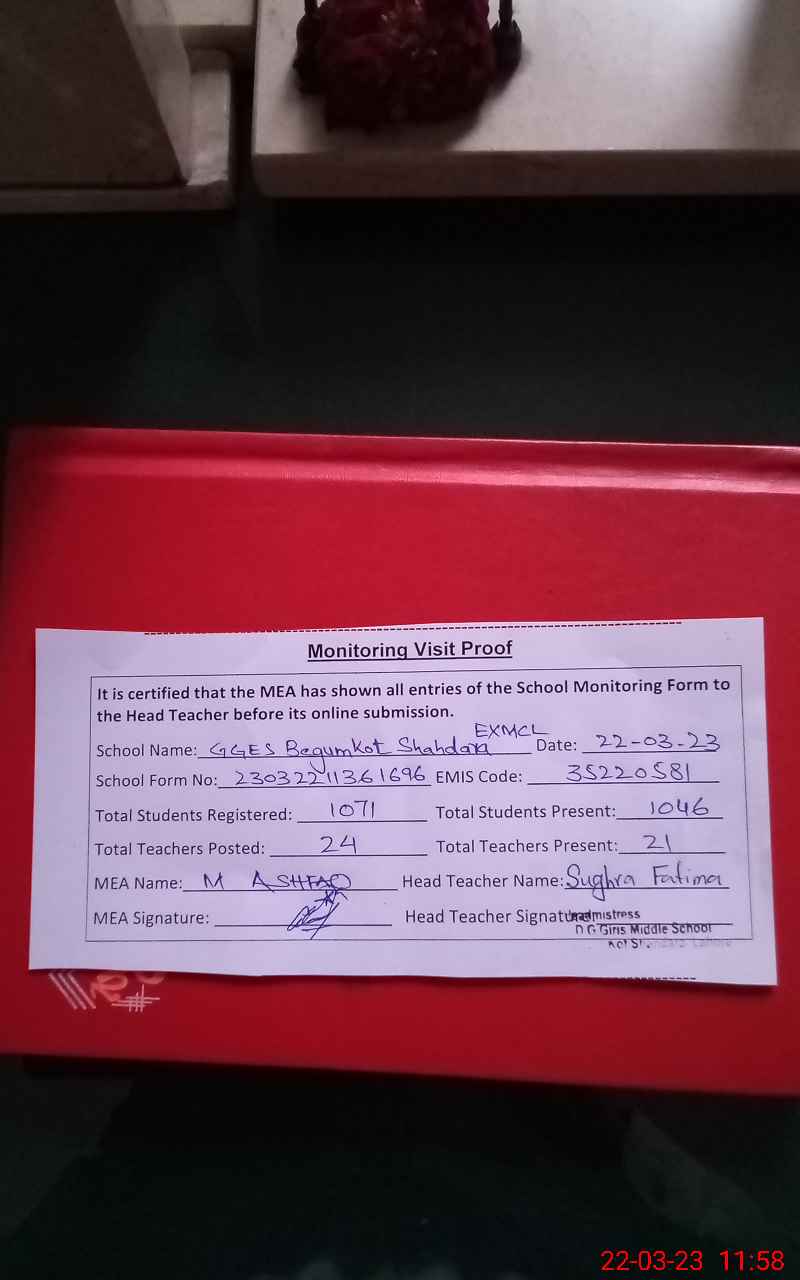 Monitoring Visit Proof
It is certified that the MEA has shown all entries of the School Monitoring Form to
the Head Teacher before its online submission.
School Name: GGES Begumkot Shahdara EXMCL Date: 22-03-23
School Form No: 23032211361696 EMIS Code: 35220581
Total Students Registered: 1071 Total Students Present: 1046
Total Teachers Posted: 24 Total Teachers Present: 21
MEA Name: M ASHFAQ Head Teacher Name: Sughra Fatima
MEA Signature: Head Teacher Signature
Headmistress
Girls Middle School
Lahore
22-03-23 11:58